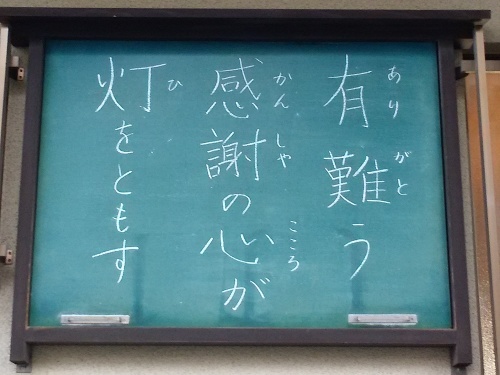 有難う
感謝の心が
灯をともす
ありがと
かんしゃ
こころ
ひ